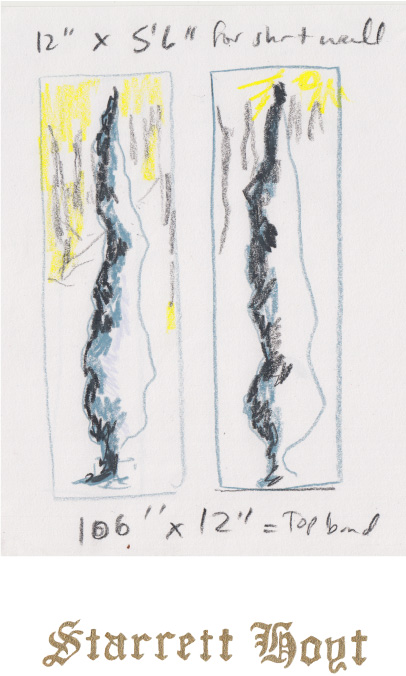 12" x 5'6" for short wall
106" x 12" = Top band
Starrett Hoyt